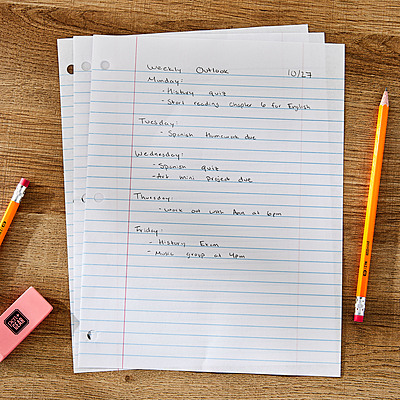 Weekly Outlook 10/27
Monday:
- History quiz
- Start reading chapter 6 for English
Tuesday:
- Spanish Homework due
Wednesday:
- Spanish quiz
- Art mini project due
Thursday:
- Work out with Ann at 6pm
Friday:
- History Exam
- Music group at 4pm